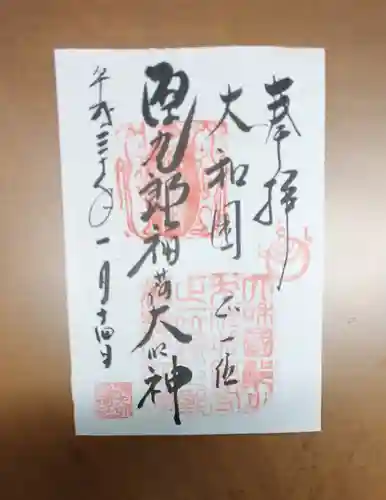 奉拝
大和國 正一位
源九郎稲荷大明神
平成三十年 一月十四日